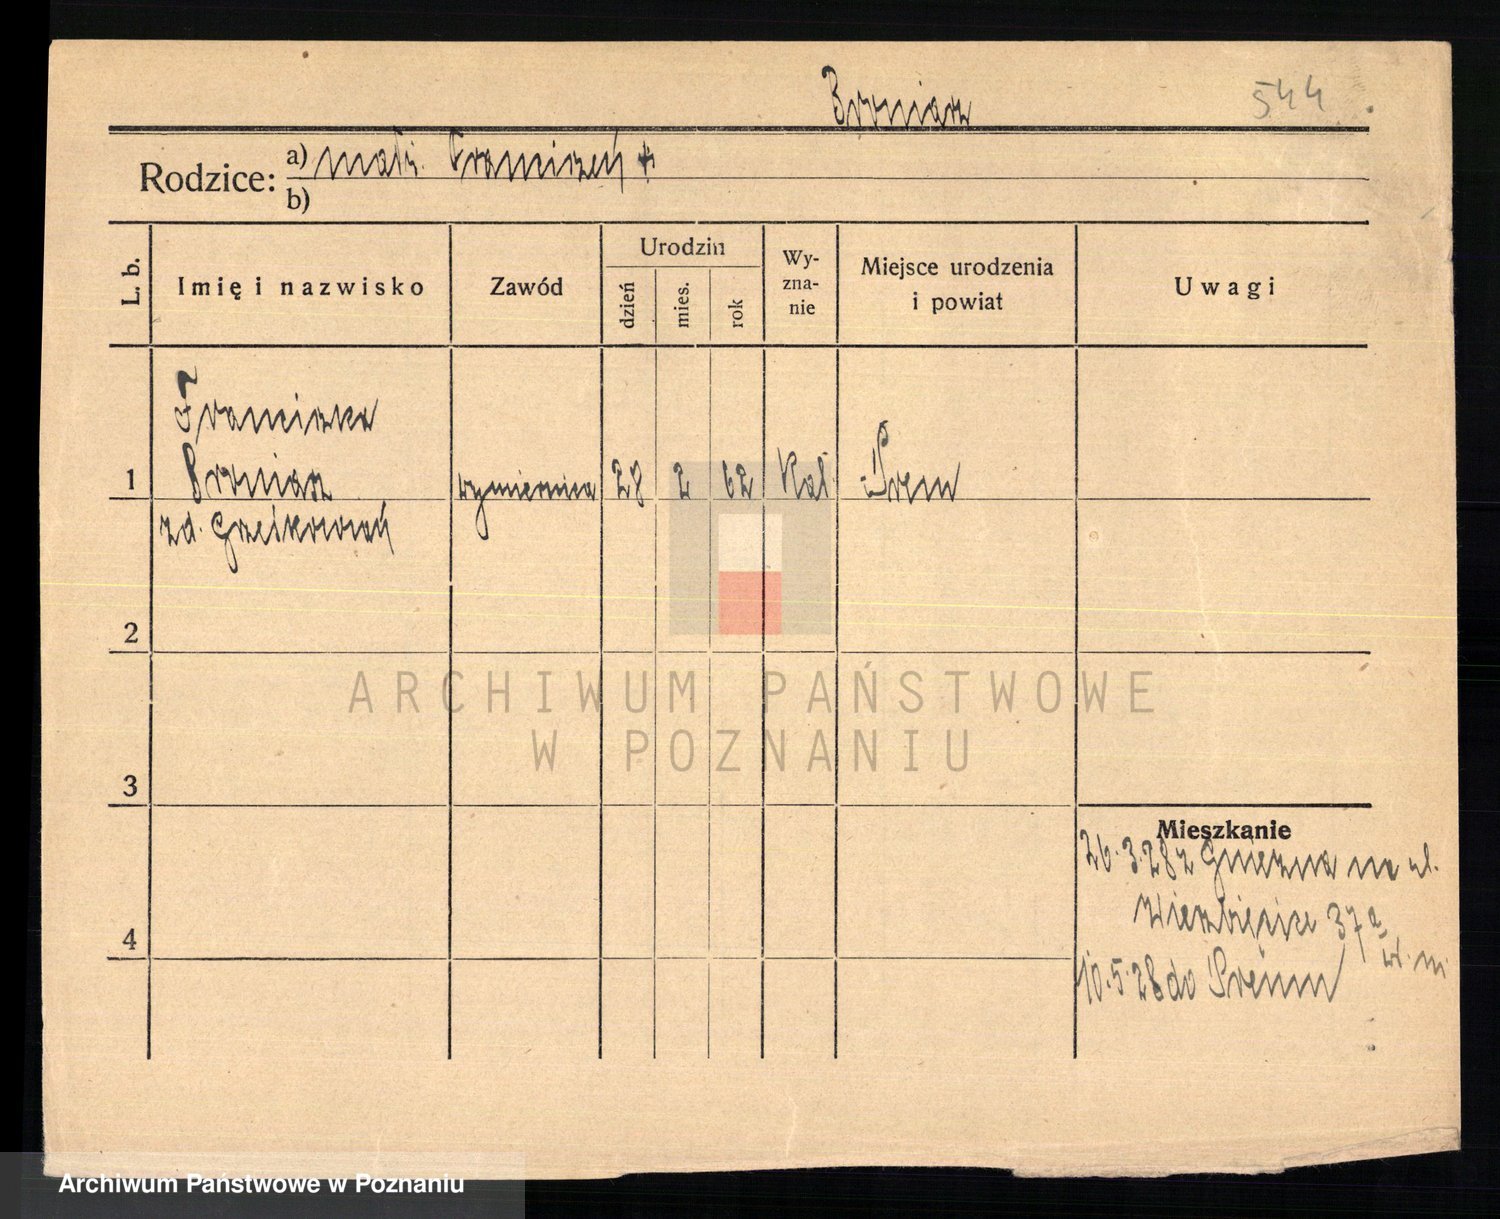 Broniarz
544
Rodzice:
a) małż. Franciszek +
b)
L. b.
Imię i nazwisko
Zawód
Urodzin
dzień
mies.
rok
Wy-
zna-
nie
Miejsce urodzenia
i powiat
Uwagi
Franciszka
1 Broniarz
28 2 62 Kat. Śrem
zd. Grześkowiak
2
ARCHIWUM PAŃSTWOWE
W POZNANIU
3
Mieszkanie
26.3.28 z Gniezna na ul.
Wierzbięcice 37a
4
10.5.28 do Śremu
Archiwum Państwowe w Poznaniu